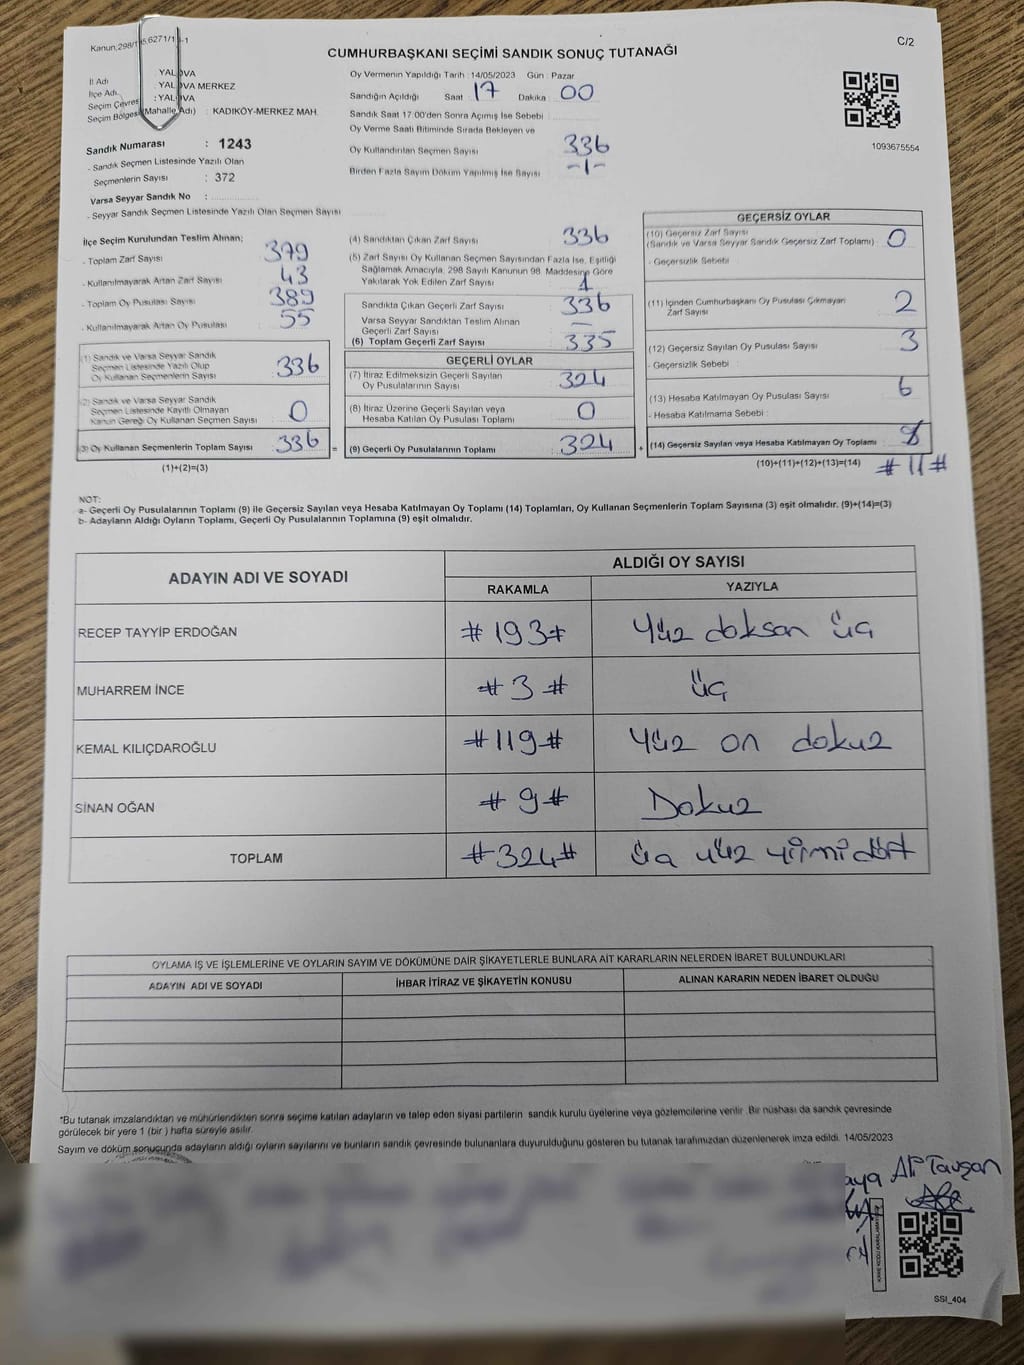 C/2
CUMHURBAŞKANI SEÇİMİ SANDIK SONUÇ TUTANAĞI
İl Adı : YALOVA
İlçe Adı : YALOVA MERKEZ
Seçim Çevresi : YALOVA
Seçim Bölgesi (Mahalle Adı) : KADIKÖY-MERKEZ MAH.
Sandık Numarası : 1243
- Sandık Seçmen Listesinde Yazılı Olan
Seçmenlerin Sayısı : 372
Varsa Seyyar Sandık No :
- Seyyar Sandık Seçmen Listesinde Yazılı Olan Seçmen Sayısı
Oy Vermenin Yapıldığı Tarih : 14/05/2023 Gün : Pazar
Sandığın Açıldığı Saat 17 Dakika 00
Sandık Saat 17:00'den Sonra Açımış İse Sebebi :
Oy Verme Saati Bitiminde Sırada Bekleyen ve
Oy Kullandırılan Seçmen Sayısı 336
Birden Fazla Sayım Döküm Yapılmış İse Sayısı -1-
1093675554
İlçe Seçim Kurulundan Teslim Alınan;
- Toplam Zarf Sayısı 379
- Kullanılmayarak Artan Zarf Sayısı : 43
- Toplam Oy Pusulası Sayısı 389
- Kullanılmayarak Artan Oy Pusulası 55
(1) Sandık ve Varsa Seyyar Sandık
Seçmen Listesinde Yazılı Olup
Oy Kullanan Seçmenlerin Sayısı 336
(2) Sandık ve Varsa Seyyar Sandık
Seçmen Listesinde Kayıtlı Olmayan
Kanun Gereği Oy Kullanan Seçmen Sayısı 0
(3) Oy Kullanan Seçmenlerin Toplam Sayısı 336
(1)+(2)=(3)
=
(4) Sandıktan Çıkan Zarf Sayısı 336
(5) Zarf Sayısı Oy Kullanan Seçmen Sayısından Fazla İse, Eşitliği
Sağlamak Amacıyla, 298 Sayılı Kanunun 98. Maddesine Göre
Yakılarak Yok Edilen Zarf Sayısı 1
Sandıkta Çıkan Geçerli Zarf Sayısı : 336
Varsa Seyyar Sandıktan Teslim Alınan
Geçerli Zarf Sayısı : —
(6) Toplam Geçerli Zarf Sayısı : 335
GEÇERLİ OYLAR
(7) İtiraz Edilmeksizin Geçerli Sayılan
Oy Pusulalarının Sayısı : 324
(8) İtiraz Üzerine Geçerli Sayılan veya
Hesaba Katılan Oy Pusulası Toplamı : 0
(9) Geçerli Oy Pusulalarının Toplamı : 324
+
GEÇERSİZ OYLAR
(10) Geçersiz Zarf Sayısı
(Sandık ve Varsa Seyyar Sandık Geçersiz Zarf Toplamı) : 0
- Geçersizlik Sebebi :
(11) İçinden Cumhurbaşkanı Oy Pusulası Çıkmayan
Zarf Sayısı : 2
(12) Geçersiz Sayılan Oy Pusulası Sayısı : 3
- Geçersizlik Sebebi :
(13) Hesaba Katılmayan Oy Pusulası Sayısı : 6
- Hesaba Katılmama Sebebi :
(14) Geçersiz Sayılan veya Hesaba Katılmayan Oy Toplamı :
(10)+(11)+(12)+(13)=(14) #11#
NOT:
a- Geçerli Oy Pusulalarının Toplamı (9) ile Geçersiz Sayılan veya Hesaba Katılmayan Oy Toplamı (14) Toplamları, Oy Kullanan Seçmenlerin Toplam Sayısına (3) eşit olmalıdır. (9)+(14)=(3)
b- Adayların Aldığı Oyların Toplamı, Geçerli Oy Pusulalarının Toplamına (9) eşit olmalıdır.
ADAYIN ADI VE SOYADI ALDIĞI OY SAYISI
RAKAMLA YAZIYLA
RECEP TAYYİP ERDOĞAN #193# Yüz doksan üç
MUHARREM İNCE #3# üç
KEMAL KILIÇDAROĞLU #119# Yüz on dokuz
SİNAN OĞAN #9# Dokuz
TOPLAM #324# üç yüz yirmi dört
OYLAMA İŞ VE İŞLEMLERİNE VE OYLARIN SAYIM VE DÖKÜMÜNE DAİR ŞİKAYETLERLE BUNLARA AİT KARARLARIN NELERDEN İBARET BULUNDUKLARI
ADAYIN ADI VE SOYADI İHBAR İTİRAZ VE ŞİKAYETİN KONUSU ALINAN KARARIN NEDEN İBARET OLDUĞU
*Bu tutanak imzalandıktan ve mühürlendikten sonra seçime katılan adayların ve talep eden siyasi partilerin sandık kurulu üyelerine veya gözlemcilerine verilir. Bir nüshası da sandık çevresinde
görülecek bir yere 1 (bir) hafta süreyle asılır.
Sayım ve döküm sonucunda adayların aldığı oyların sayılarını ve bunların sandık çevresinde bulunanlara duyurulduğunu gösteren bu tutanak tarafımızdan düzenlenerek imza edildi. 14/05/2023
aya Ali Tavşan
SSI_404